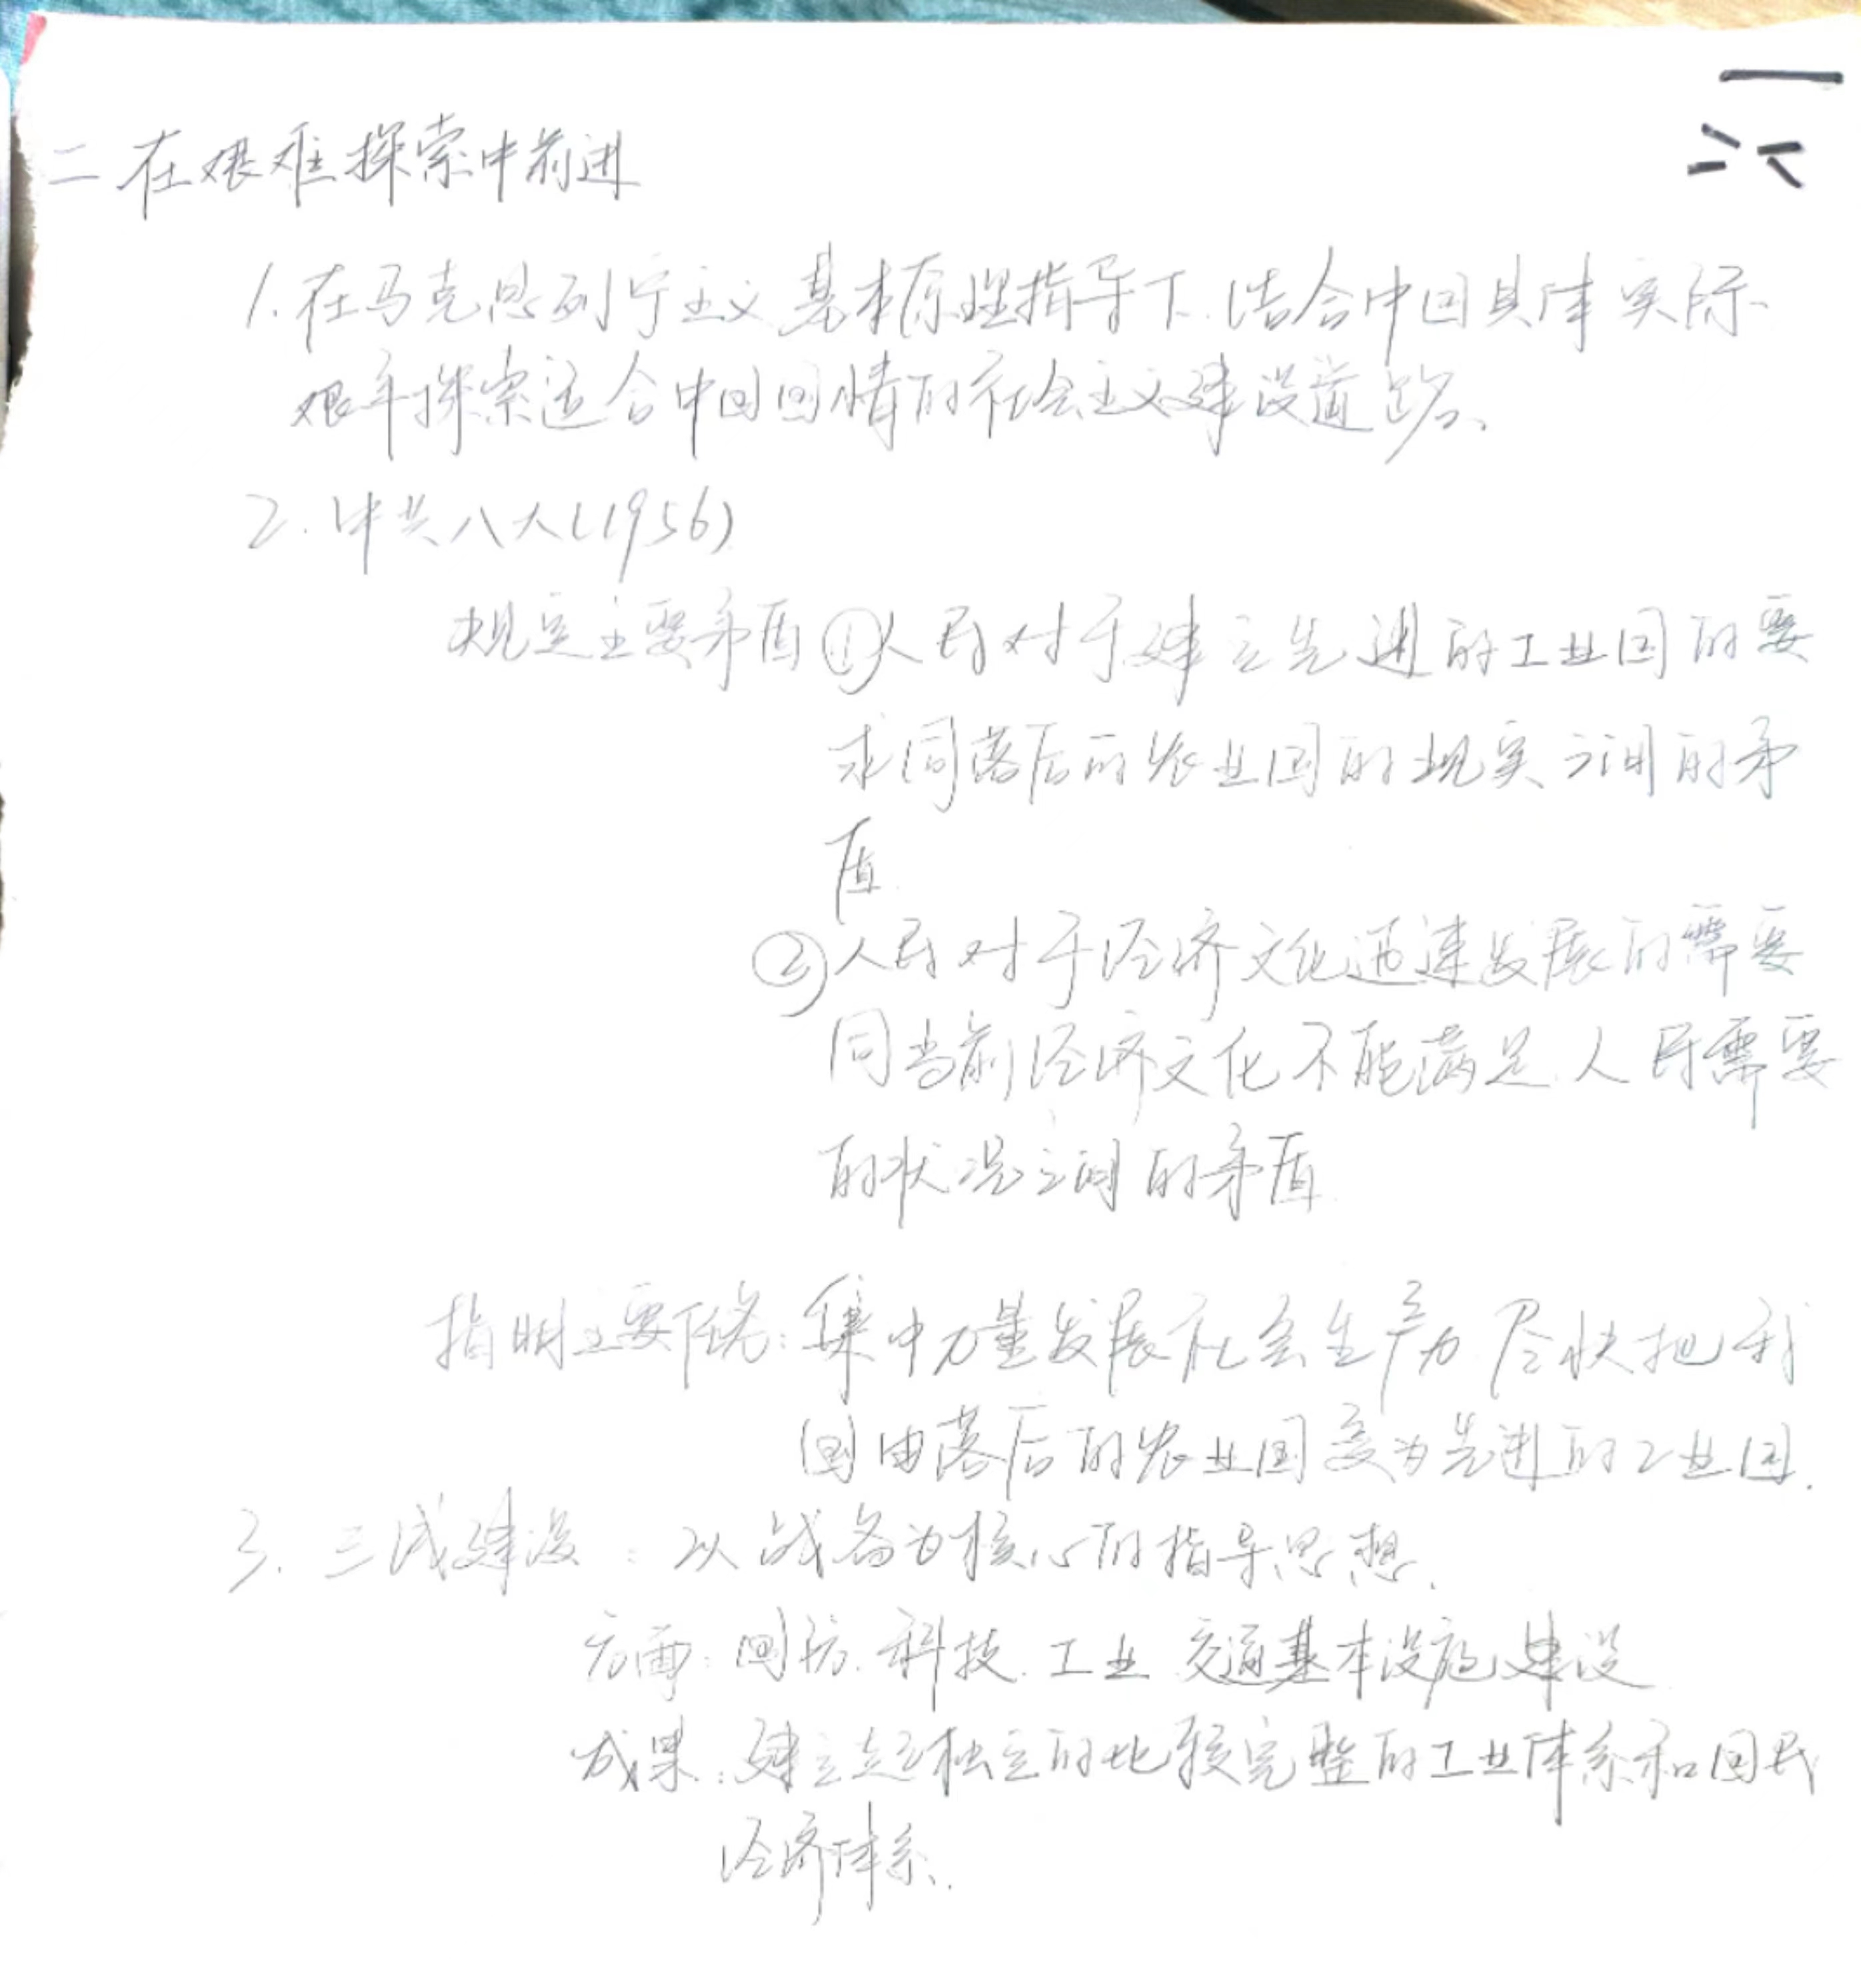 二 在艰难探索中前进
1. 在马克思列宁主义基本原理指导下、结合中国具体实际、
艰辛探索适合中国国情的社会主义建设道路、
2. 中共八大(1956)
规定主要矛盾①人民对于建立先进的工业国的要
求同落后的农业国的现实之间的矛
盾
②人民对于经济文化迅速发展的需要
同当前经济文化不能满足人民需要
的状况之间的矛盾
指明主要任务:集中力量发展社会生产力 尽快把我
国由落后的农业国变为先进的工业国.
3. 三线建设:以战备为核心的指导思想.
方面:国防.科技.工业 交通基本设施建设
成果:建立起独立的比较完整的工业体系和国民
经济体系.